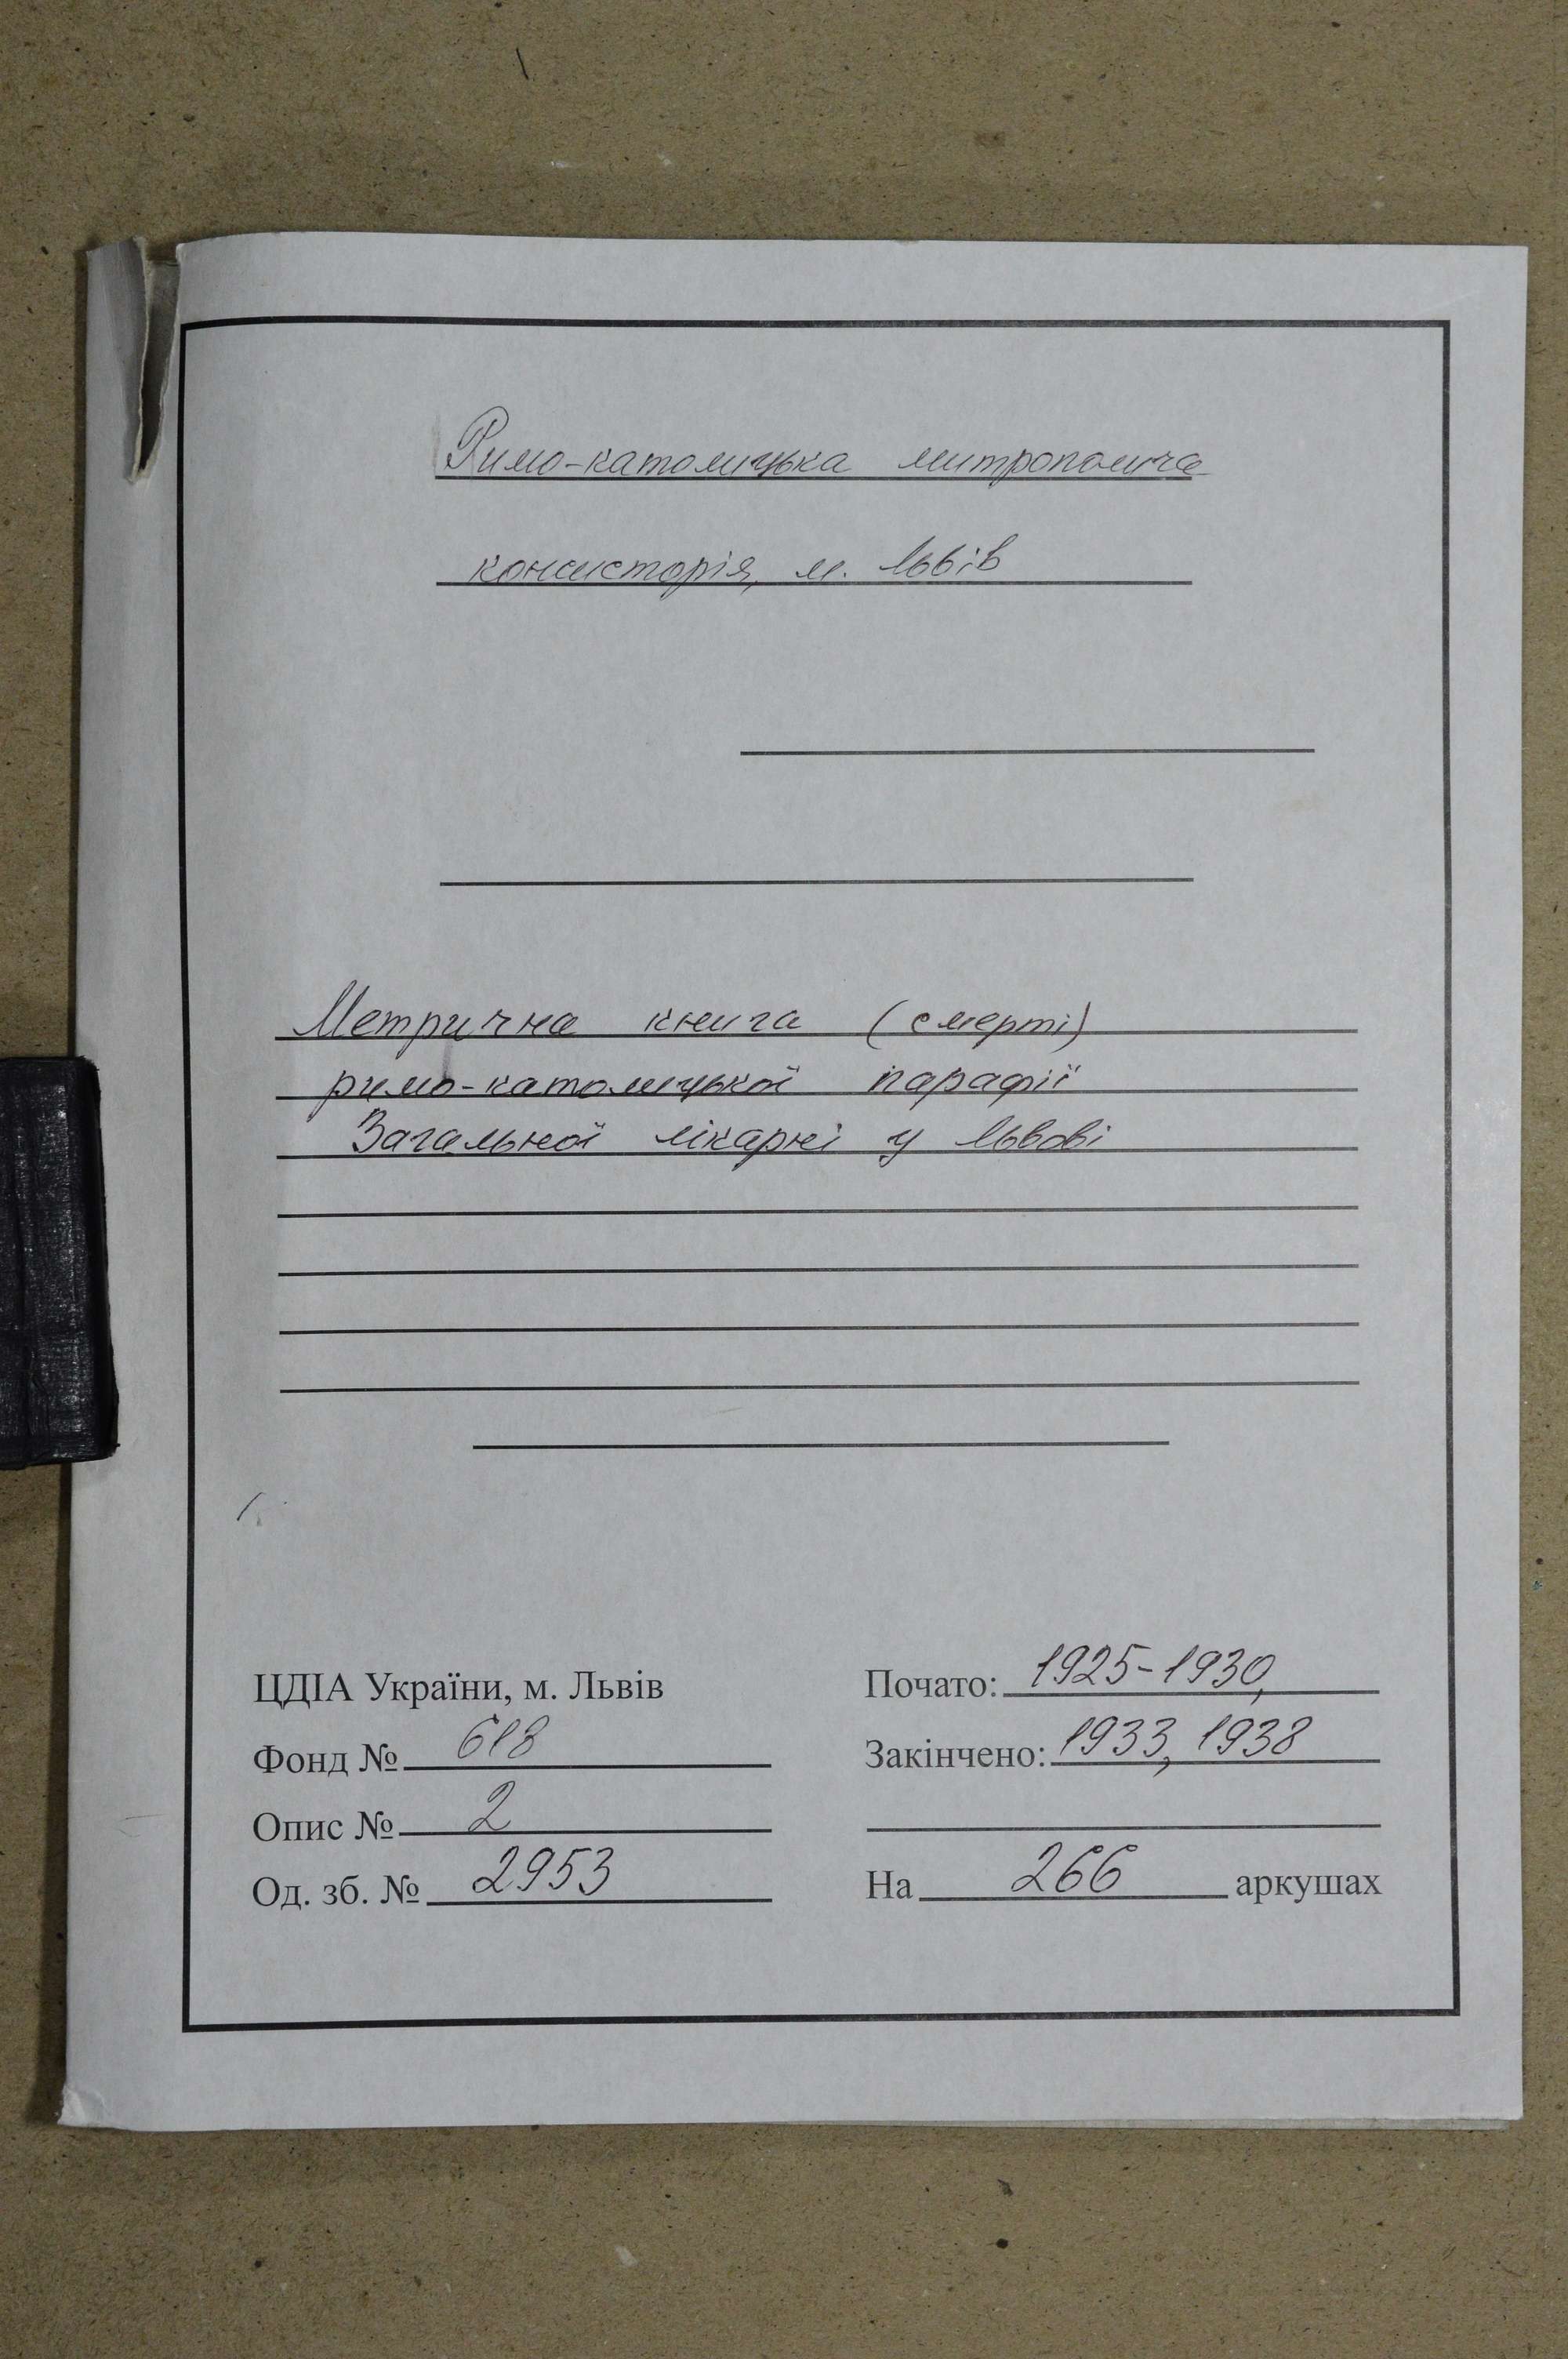 Римо-католицька митрополича
консисторія, м. Львів
Метрична книга (смерті)
римо-католицької парафії
Загальної лікарні у Львові
ЦДІА України, м. Львів
Фонд № 618
Опис № 2
Од. зб. № 2953
Почато: 1925-1930,
Закінчено: 1933, 1938
На 266 аркушах